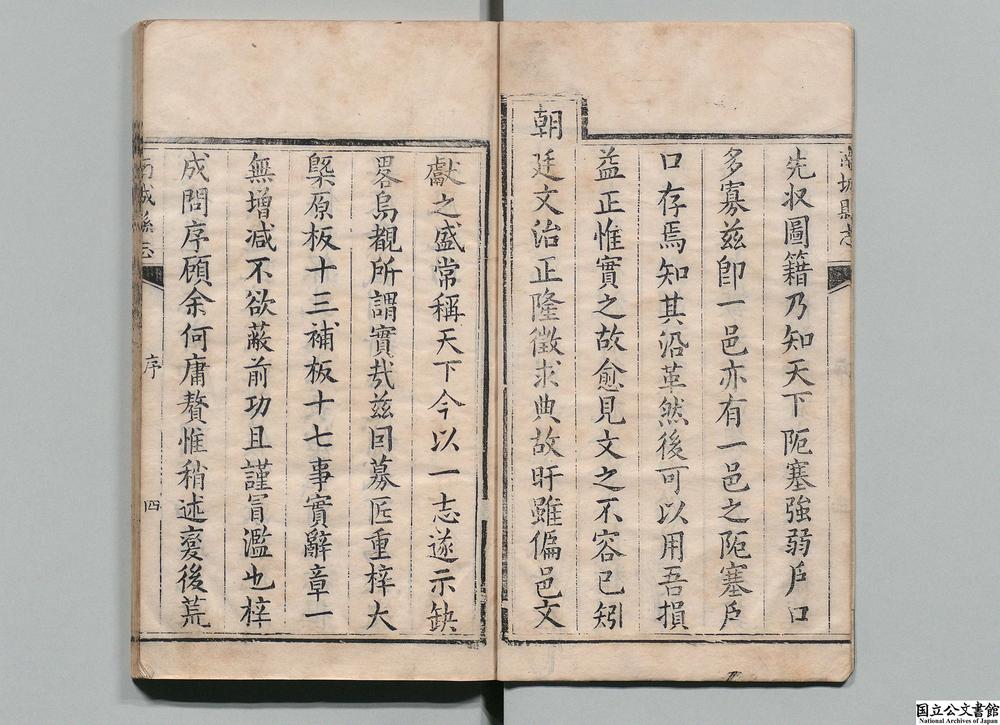 南城縣志
先収圖籍乃知天下阨塞強弱戶口
多寡茲卽一邑亦有一邑之阨塞戶
口存焉知其沿革然後可以用吾損
益正惟實之故愈見文之不容已矧
朝
廷文治正隆徵求典故旴雖偏邑文
獻之盛常稱天下今以一志遂示缺
畧烏覩所謂實㢤茲因募匠重梓大
槩原板十三補板十七事實辭章一
無增減不欲蔽前功且謹冐濫也梓
成問序顧余何庸贅惟稍述变後荒
南城縣志
序
四
国立公文書館
National Archives of Japan